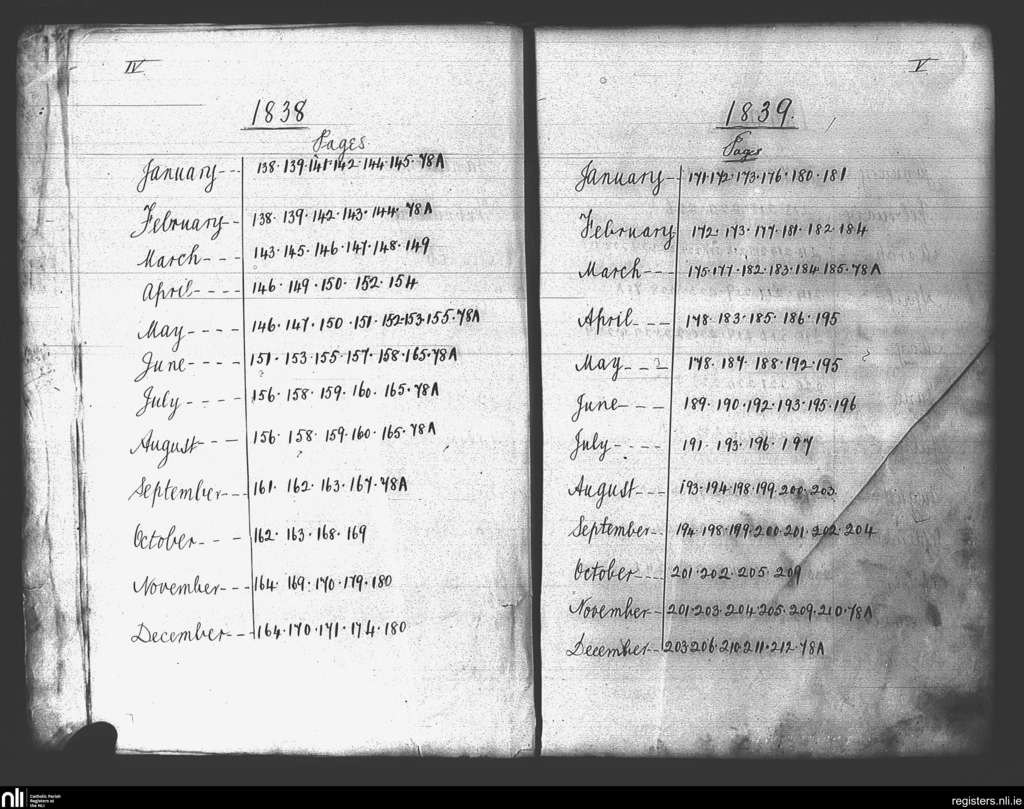 IV
1838
Pages
January--- 138·139·141·142·144·145·78A
February-- 138·139·142·143·144·78A
March--- 143·145·146·147·148·149
April---- 146·149·150·152·154
May ---- 146·147·150·151·152·153·155·78A
June---- 151·153·155·157·158·165·78A
July ---- 156·158·159·160·165·78A
August--- 156·158·159·160·165·78A
September--- 161·162·163·167·78A
October--- 162·163·168·169
November--- 164·169·170·179·180
December--- 164·170·171·174·180
V
1839.
Pages
January-- 171·172·173·176·180·181
February 172·173·177·181·182·184
March--- 175·177·182·183·184·185·78A
April --- 178·183·185·186·195
May--- 178·187·188·192·195
June--- 189·190·192·193·195·196
July---- 191·193·196·197
August--- 193·194·198·199·200·203
September-- 194·198·199·200·201·202·204
October--- 201·202·205·209
November-- 201·203·204·205·209·210·78A
December-- 203·206·210·211·212·78A
nli Catholic Parish
Registers at
the NLI
registers.nli.ie